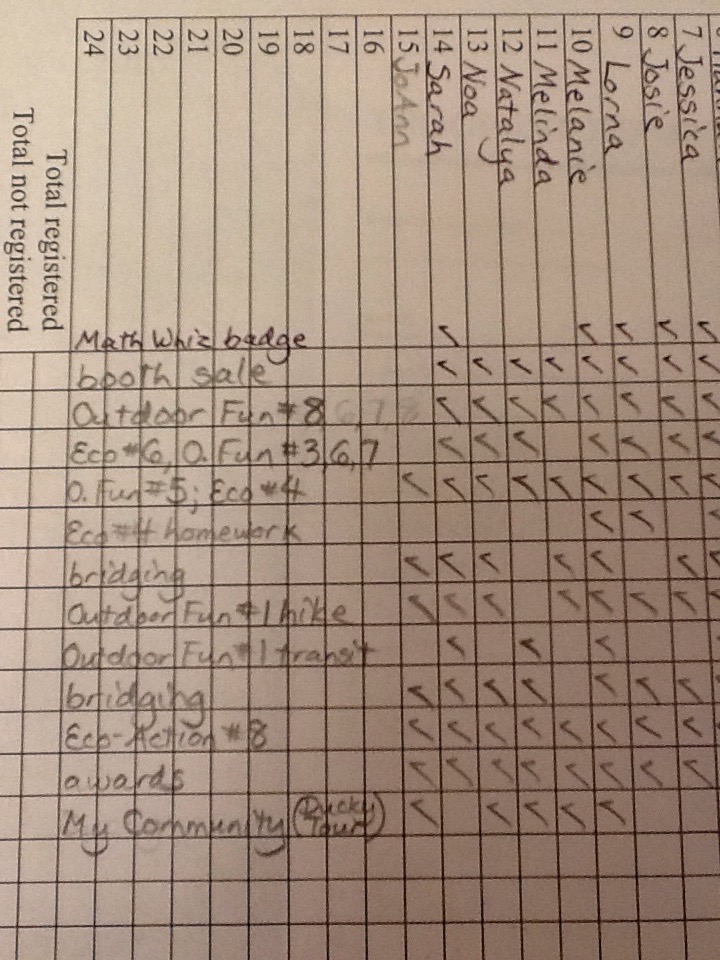 7 Jessica
8 Josie
9 Lorna
10 Melanie
11 Melinda
12 Natalya
13 Noa
14 Sarah
15 JoAnn
16
17
18
19
20
21
22
23
24
Total registered
Total not registered
Math Whiz badge
booth sale
Outdoor Fun #8 6,7,8
Eco #6, O. Fun #3,6,7
O. Fun #5; Eco #4
Eco #4 homework
bridging
Outdoor Fun #1 hike
Outdoor Fun #1 transit
bridging
Eco-Action #8
awards
My Community (Ducky Tour)